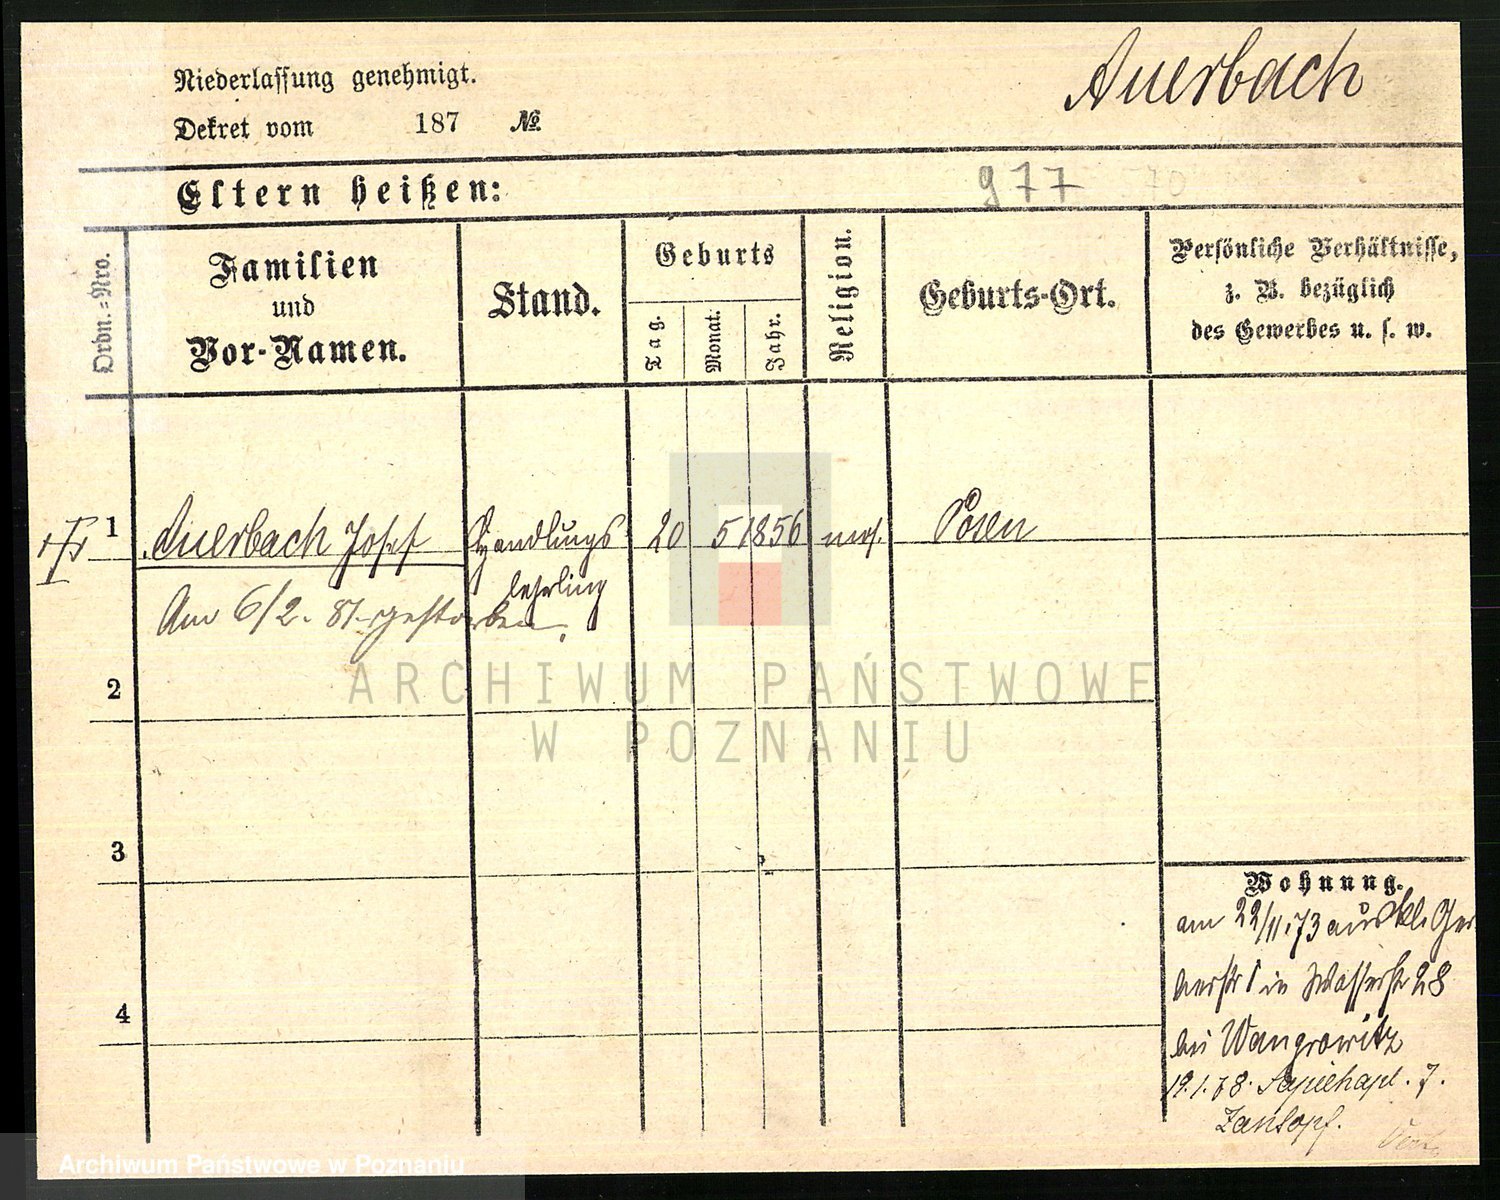 Auerbach
Niederlassung genehmigt.
Dekret vom 187 №
Eltern heißen:
977 70
Ordn.=Nro.
Familien
und
Vor-Namen.
Stand.
Geburts
Tag.
Monat.
Jahr.
Religion.
Geburts-Ort.
Persönliche Verhältnisse,
z. B. bezüglich
des Gewerbes u. s. w.
1 Auerbach Josef Handlungs 20 5 1856 mos. Posen
lehrling
Am 6/2. 81. gestorben.
2
ARCHIWUM PAŃSTWOWE
W POZNANIU
3
Wohnung.
am 22/11.73 aus kl. Ger
berstr in Wasserstr 28
bei Wangrowitz
19.1.78. Sapiehapl. 7.
4
Archiwum Państwowe w Poznaniu